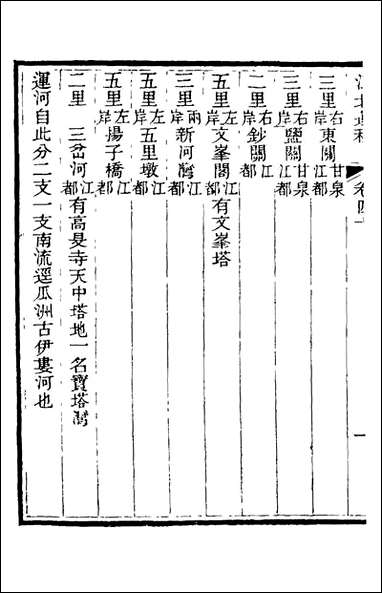 卷四十
一
三里右岸東關甘泉江都
三里右岸鹽關甘泉江都
二里右岸鈔關江都
五里左岸文峯閣江都有文峯塔
五里兩岸新河灣江都
五里左岸五里墩江都
五里左岸揚子橋江都
二里　三岔河江都有高旻寺天中塔地一名寶塔灣
運河自此分二支一支南流逕瓜洲古伊婁河也